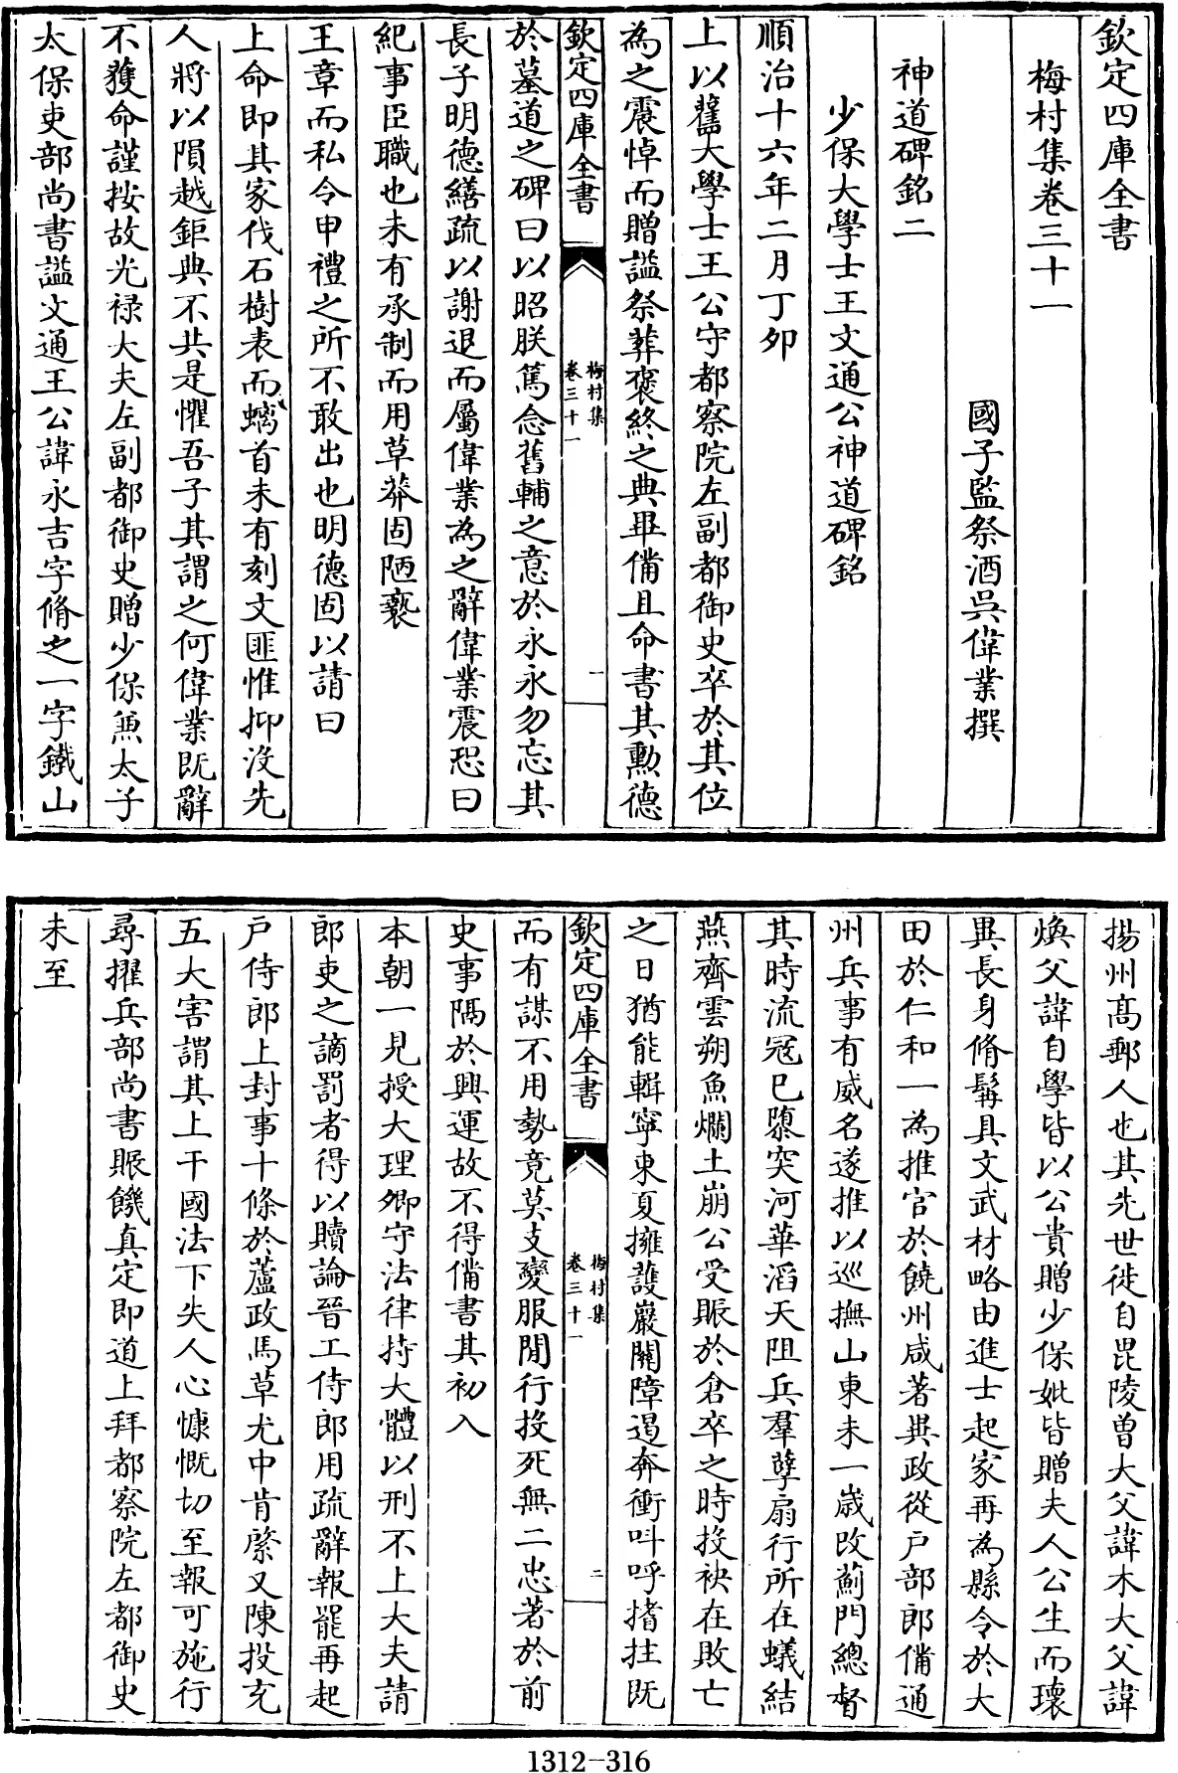 欽定四庫全書
梅村集卷三十一
國子監祭酒吳偉業撰
神道碑銘二
少保大學士王文通公神道碑銘
順治十六年二月丁卯
上以舊大學士王公守都察院左副都御史卒於其位
為之震悼而贈諡祭葬褒終之典畢備且命書其勲德
欽定四庫全書
梅村集
卷三十一
一
於墓道之碑曰以昭朕篤念舊輔之意於永永勿忘其
長子明德繕疏以謝退而屬偉業為之辭偉業震恐曰
紀事臣職也未有承制而用草莽固陋褻
王章而私令申禮之所不敢出也明德固以請曰
上命即其家伐石樹表而螭首未有刻文匪惟抑沒先
人將以隕越鉅典不共是懼吾子其謂之何偉業既辭
不獲命謹按故光禄大夫左副都御史贈少保兼太子
太保吏部尚書諡文通王公諱永吉字脩之一字鐵山
揚州髙郵人也其先世徙自毘陵曽大父諱木大父諱
煥父諱自學皆以公貴贈少保妣皆贈夫人公生而瓌
異長身脩髯具文武材略由進士起家再為縣令於大
田於仁和一為推官於饒州咸著異政從户部郎備通
州兵事有威名遂推以巡撫山東未一歳改薊門總督
其時流冦已隳突河華滔天阻兵羣孽扇行所在蟻結
燕齊雲朔魚爛土崩公受賑於倉卒之時投袂在敗亡
之日猶能輯寧東夏擁䕶巖關障遏奔衝叫呼搘拄既
欽定四庫全書
梅村集
卷三十一
二
而有謀不用勢竟莫支變服間行投死無二忠著於前
史事隔於興運故不得備書其初入
本朝一見授大理卿守法律持大體以刑不上大夫請
郎吏之謫罰者得以贖論晉工侍郎用疏辭報罷再起
户侍郎上封事十條於蘆政馬草尤中肯綮又陳投充
五大害謂其上干國法下失人心慷慨切至報可施行
尋擢兵部尚書賑饑真定即道上拜都察院左都御史
未至
1312-316